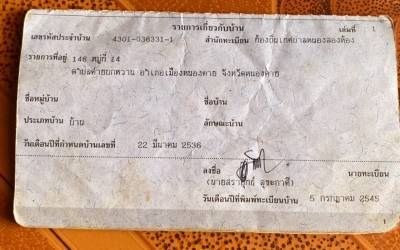 รายการเกี่ยวกับบ้าน เล่มที่ 1
เลขรหัสประจำบ้าน 4301-036331-1 สำนักทะเบียน ท้องถิ่นเทศบาลหนองสองห้อง
รายการที่อยู่ 146 หมู่ที่ 14
ตำบลค่ายบกหวาน อำเภอเมืองหนองคาย จังหวัดหนองคาย
ชื่อหมู่บ้าน ชื่อบ้าน
ประเภทบ้าน บ้าน ลักษณะบ้าน
วันเดือนปีที่กำหนดบ้านเลขที่ 22 มีนาคม 2536
ลงชื่อ นายทะเบียน
วันเดือนปีที่พิมพ์ทะเบียนบ้าน 5 กรกฎาคม 2545
1